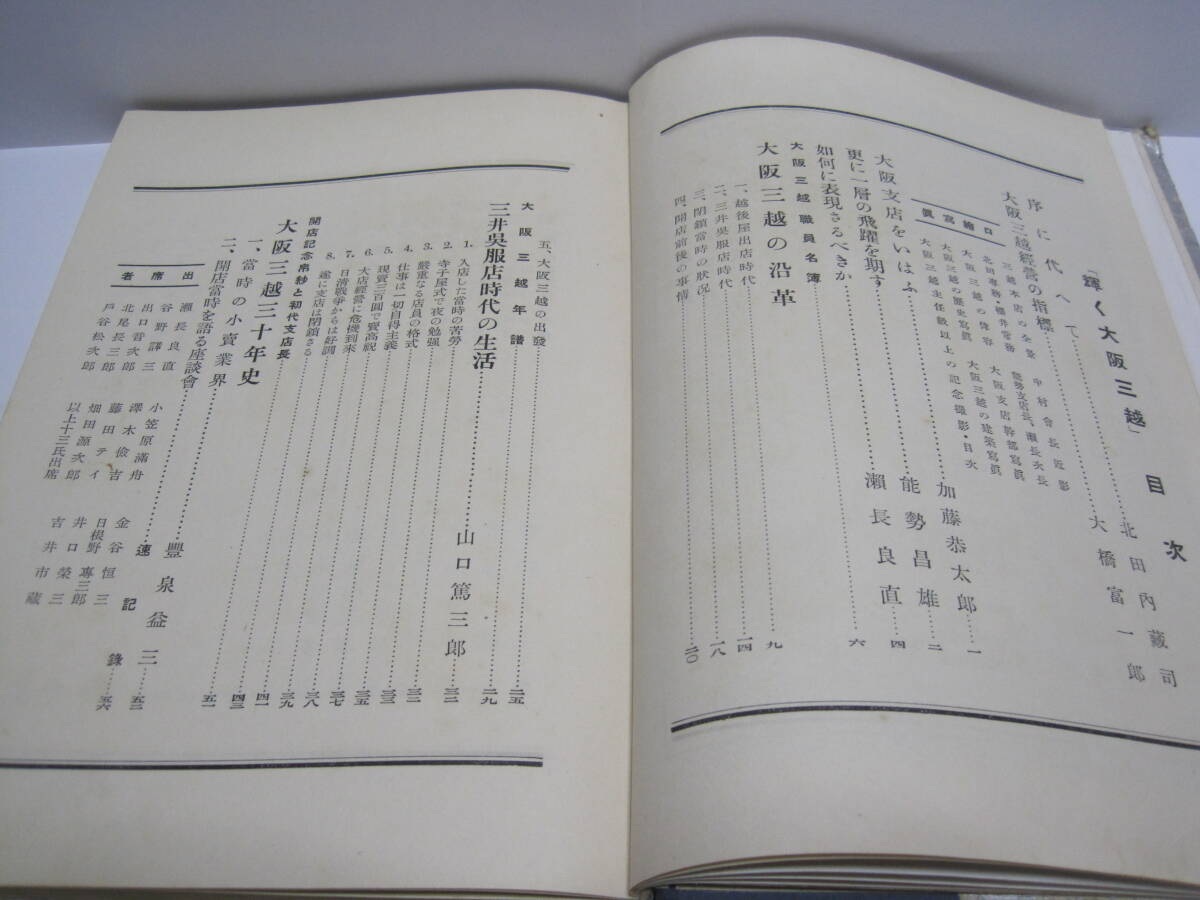 「輝く大阪三越」 目次
序に代へて 北田内蔵司
大阪三越經營の指標 大橋富一郎
口繪寫眞
三越本店の全景 中村會長近影
北田專務・櫻井常務 能勢支店長、瀬長次長
大阪三越の偉容 大阪支店幹部寫眞
大阪三越の歴史寫眞 大阪三越の建築寫眞
大阪三越主任級以上の記念撮影・目次
加藤恭太郎 一
大阪支店をいはふ 能勢昌雄 二
更に一層の飛躍を期す 瀬長良直 四
如何に表現さるべきか 六
大阪三越職員名簿
大阪三越の沿革 九
一、越後屋出店時代 一四
二、三井呉服店時代 一八
三、閉鎖當時の狀況
四、開店前後の事情 二〇
五、大阪三越の出發 二五
大阪三越年譜 二九
三井呉服店時代の生活 山口篤三郎
1. 入店した當時の苦勞
2. 寺子屋式で夜の勉强
3. 嚴重なる店員の格式
4. 仕事は一切自得主義
5. 現賣三百圓で賣高祝
6. 大店經營に危機到來
7. 日清戰爭からは好調
8. 遂に支店は閉鎖さる
開店記念帛紗と初代支店長
大阪三越三十年史
一、當時の小賣業界 豐泉益三
二、開店當時を語る座談會 速記錄
出席者
瀬長良直 小笠原滿舟 金谷恒三
谷野譯三 澤木儉吉 日根野專三郎
出口音次郎 藤田テイ 井口榮三
北尾長三郎 畑田源次郎 吉井市藏
戸谷松次郎 以上十三氏出席